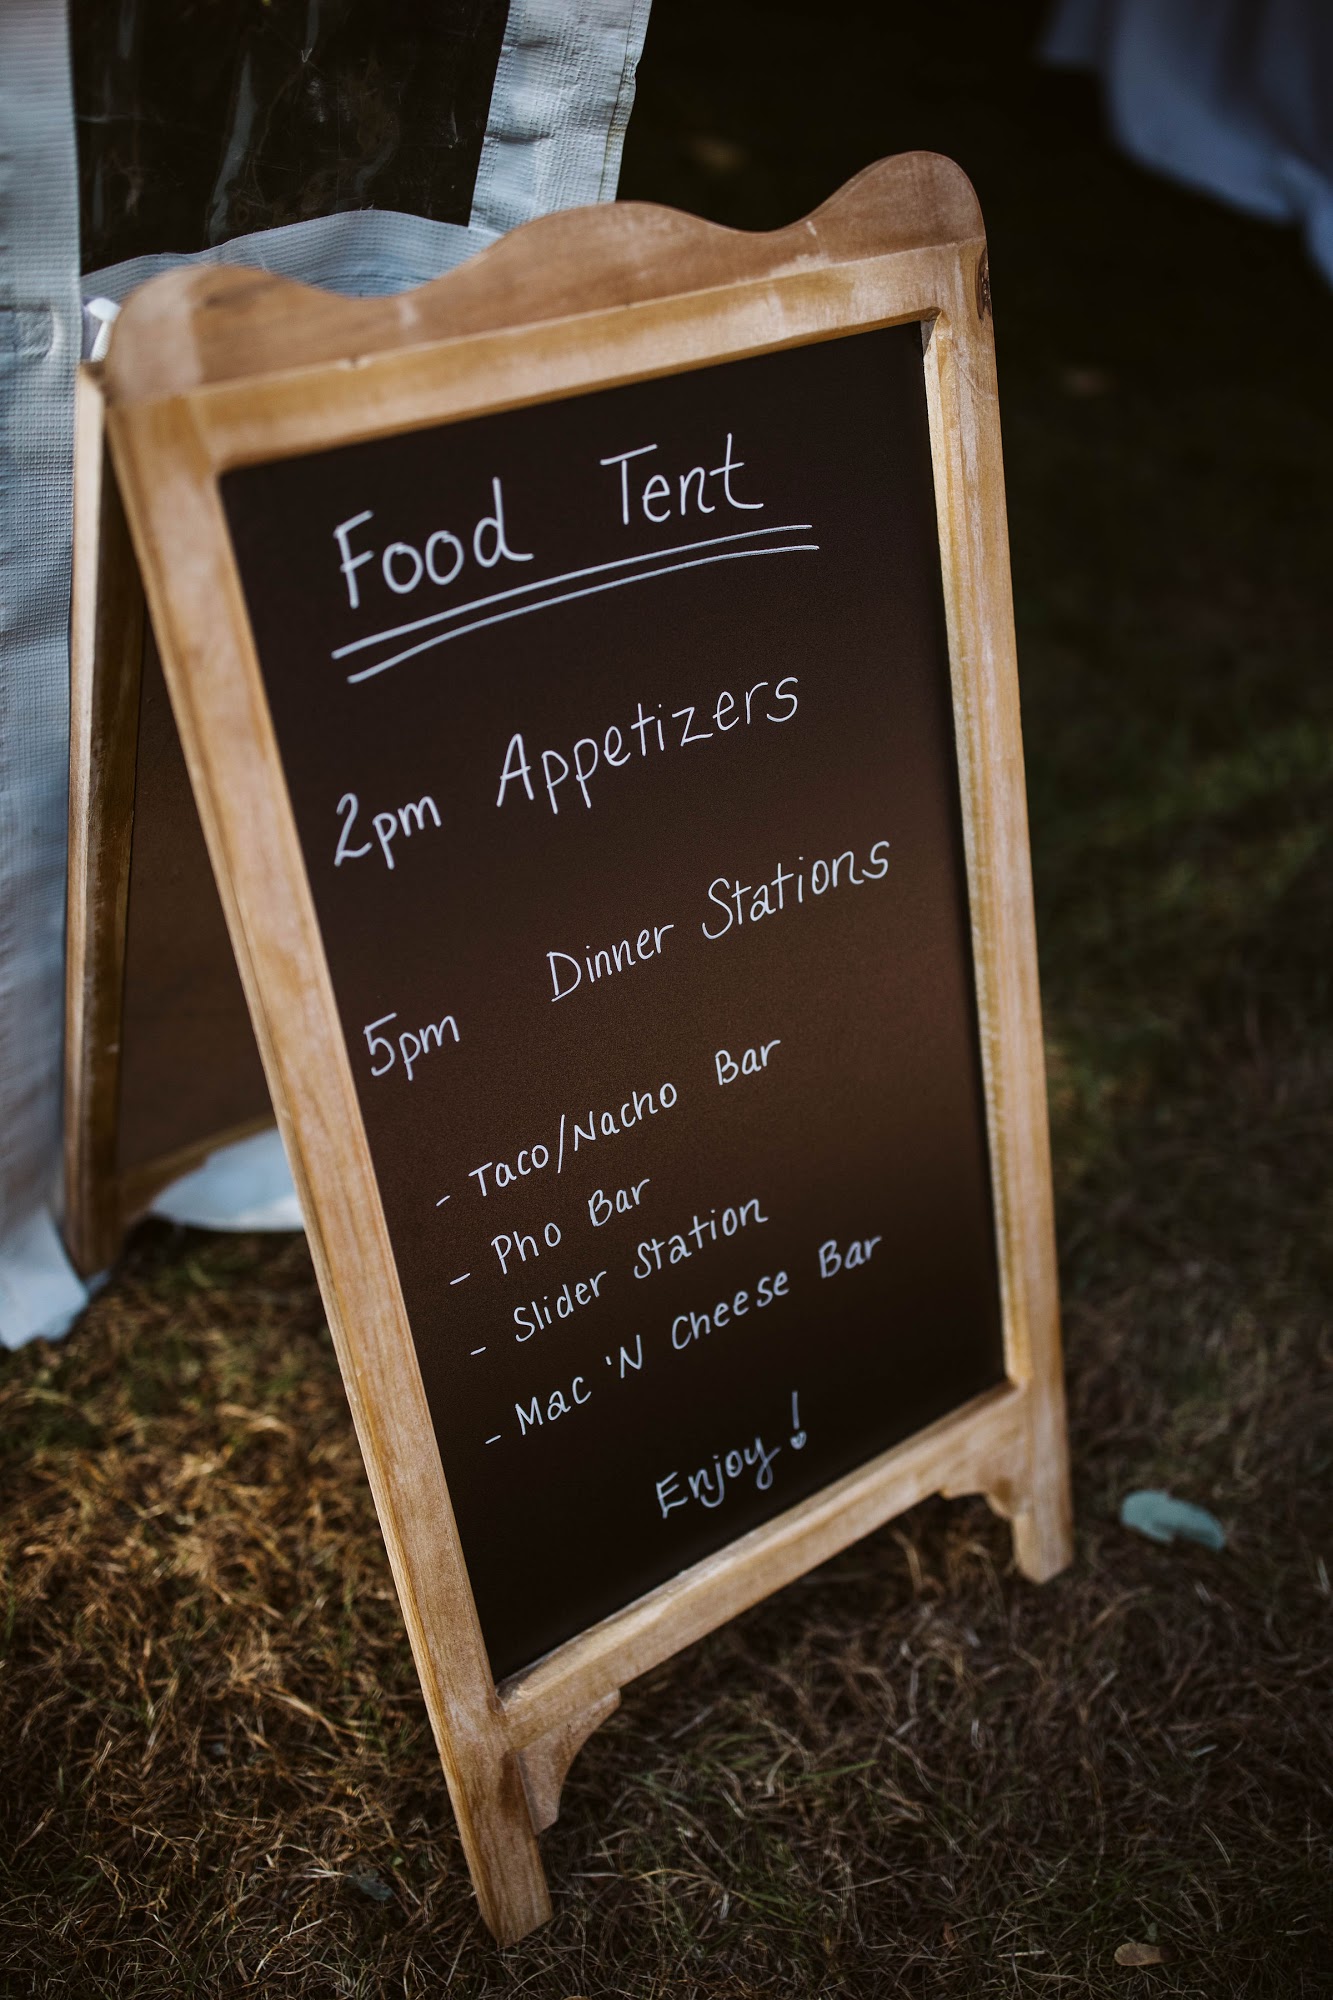 Food Tent
2pm Appetizers
5pm Dinner Stations
- Taco/Nacho Bar
- Pho Bar
- Slider Station
- Mac 'N Cheese Bar
Enjoy!